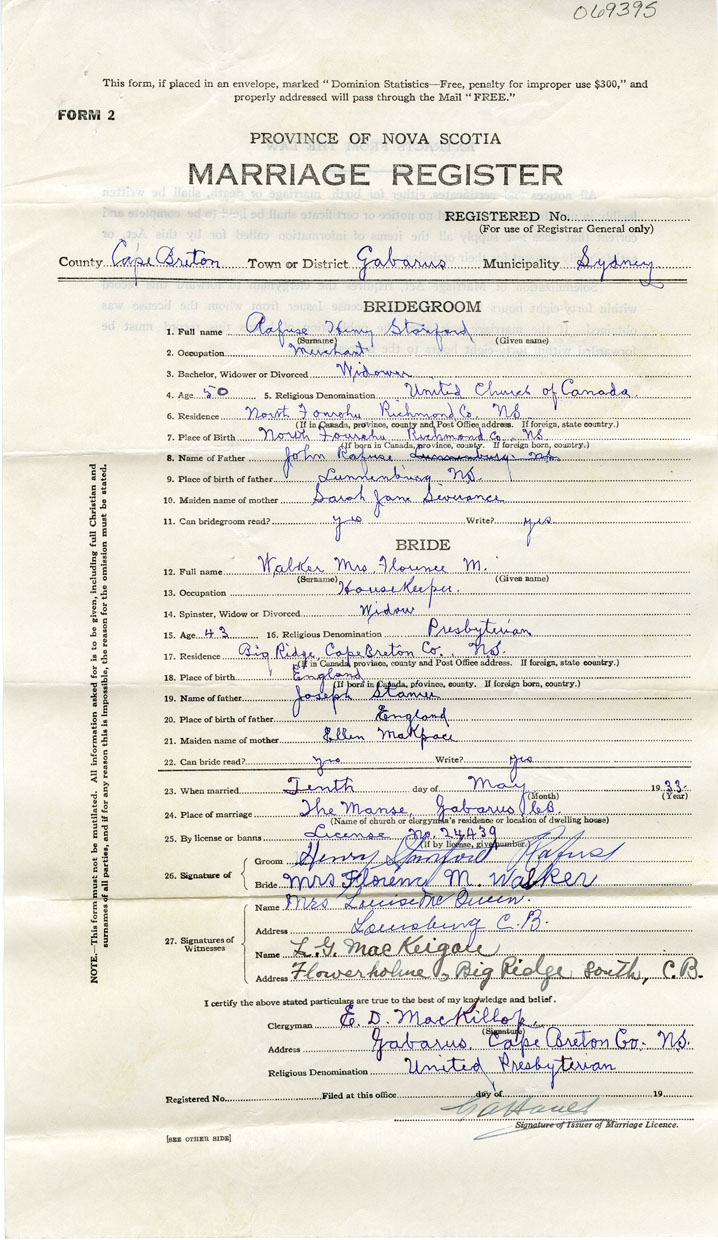 069395
This form, if placed in an envelope, marked "Dominion Statistics—Free, penalty for improper use $300," and
properly addressed will pass through the Mail "FREE."
FORM 2
PROVINCE OF NOVA SCOTIA
MARRIAGE REGISTER
REGISTERED No.
(For use of Registrar General only)
County Cape Breton Town or District Gabarus Municipality Sydney
BRIDEGROOM
1. Full name Rafuse Henry Stanford
(Surname) (Given name)
2. Occupation Merchant
3. Bachelor, Widower or Divorced Widower
4. Age 50 5. Religious Denomination United Church of Canada
6. Residence North Fourchu Richmond Co. NS
(If in Canada, province, county and Post Office address. If foreign, state country.)
7. Place of Birth North Fourchu Richmond Co. NS.
(If born in Canada, province, county. If foreign born, country.)
8. Name of Father John Rafuse Lunnenburg NS.
9. Place of birth of father Lunnenburg NS.
10. Maiden name of mother Sarah Jane Siverance
11. Can bridegroom read? yes Write? yes
BRIDE
12. Full name Walker Mrs Florence M.
(Surname) (Given name)
13. Occupation HouseKeeper.
14. Spinster, Widow or Divorced Widow
15. Age 43 16. Religious Denomination Presbyterian
17. Residence Big Ridge, Cape Breton Co., NS.
(If in Canada, province, county and Post Office address. If foreign, state country.)
18. Place of birth England
(If born in Canada, province, county. If foreign born, country.)
19. Name of father Joseph
20. Place of birth of father England
21. Maiden name of mother Ellen MaKpace
22. Can bride read? yes Write? yes
23. When married Tenth day of May 1933
(Month) (Year)
24. Place of marriage The Manse, Gabarus CB
(Name of church or clergyman's residence or location of dwelling house)
25. By license or banns License No. 24439
(If by license, give number.)
26. Signature of
Groom Henry Stanford Rafuse
Bride Mrs Florence M. Walker
27. Signatures of Witnesses
Name Mrs Louise McQueen.
Address Louisburg C.B.
Name L. G. MacKeigan
Address Flowerholme, Big Ridge South, C.B.
I certify the above stated particulars are true to the best of my knowledge and belief.
Clergyman E. D. MacKillop.
(Signature)
Address Gabarus, Cape Breton Co. NS.
Religious Denomination United Presbyterian
Registered No. Filed at this office day of 19
Signature of Issuer of Marriage Licence.
[SEE OTHER SIDE]
NOTE.—This form must not be mutilated. All information asked for is to be given, including full Christian and
surnames of all parties, and if for any reason this is impossible, the reason for the omission must be stated.